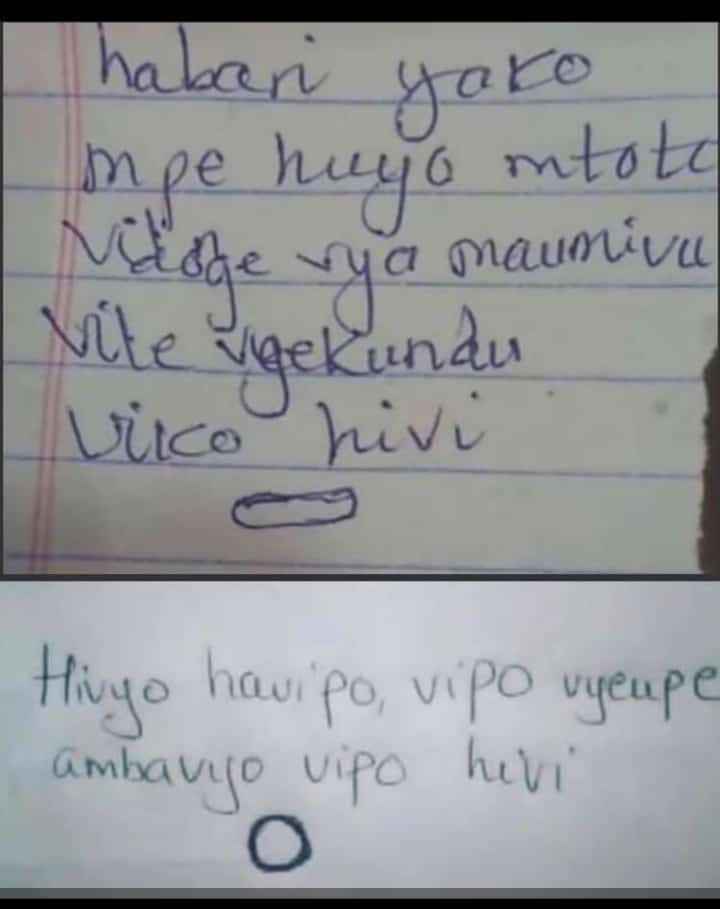 habari yako
mpe huyo mtoto
vidoge vya maumivu
vile vyekundu
viko hivi
Hivyo havipo, vipo vyeupe
ambavyo vipo hivi